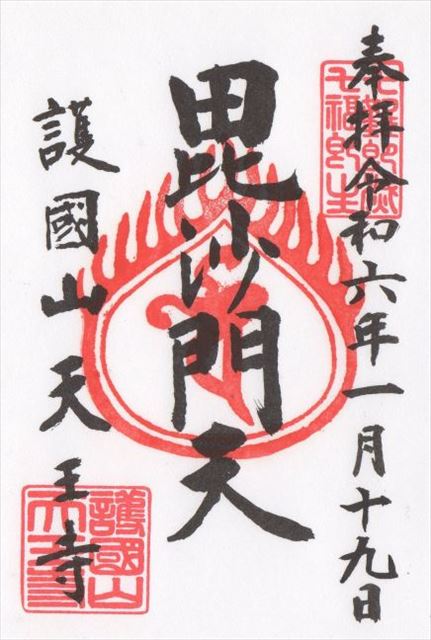 奉拝令和六年一月十九日
毘沙門天
護國山天王寺
護國山
天王寺